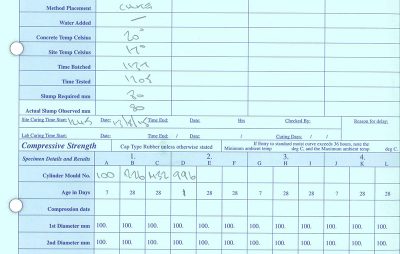 Method Placement
Water Added —
Concrete Temp Celsius 20°
Site Temp Celsius 17°
Time Batched
Time Tested 1205
Slump Required mm 80
Actual Slump Observed mm 80
Site Curing Time Start: Date: Time End: Date: Hrs Checked By: Reason for delay:
Lab Curing Time Start: Date: Time End: / Date: / Curing Dates: / /
Compressive Strength Cap Type Rubber unless otherwise stated If Hrsny to standard moist curve exceeds 36 hours, note the
Minimum ambient temp deg C, and the Maximum ambient temp deg C.
Specimen Details and Results 1. 2. 3. 4.
A B C D E F G H I J K L
Cylinder Mould No. 100 226 432 996
Age in Days 7 28 28 1 28 28 7 28 28 7 28 28
Compression date
1st Diameter mm 100. 100. 100. 100. 100. 100. 100. 100. 100. 100. 100. 100.
2nd Diameter mm 100. 100. 100. 100. 100. 100. 100. 100. 100. 100. 100. 100.